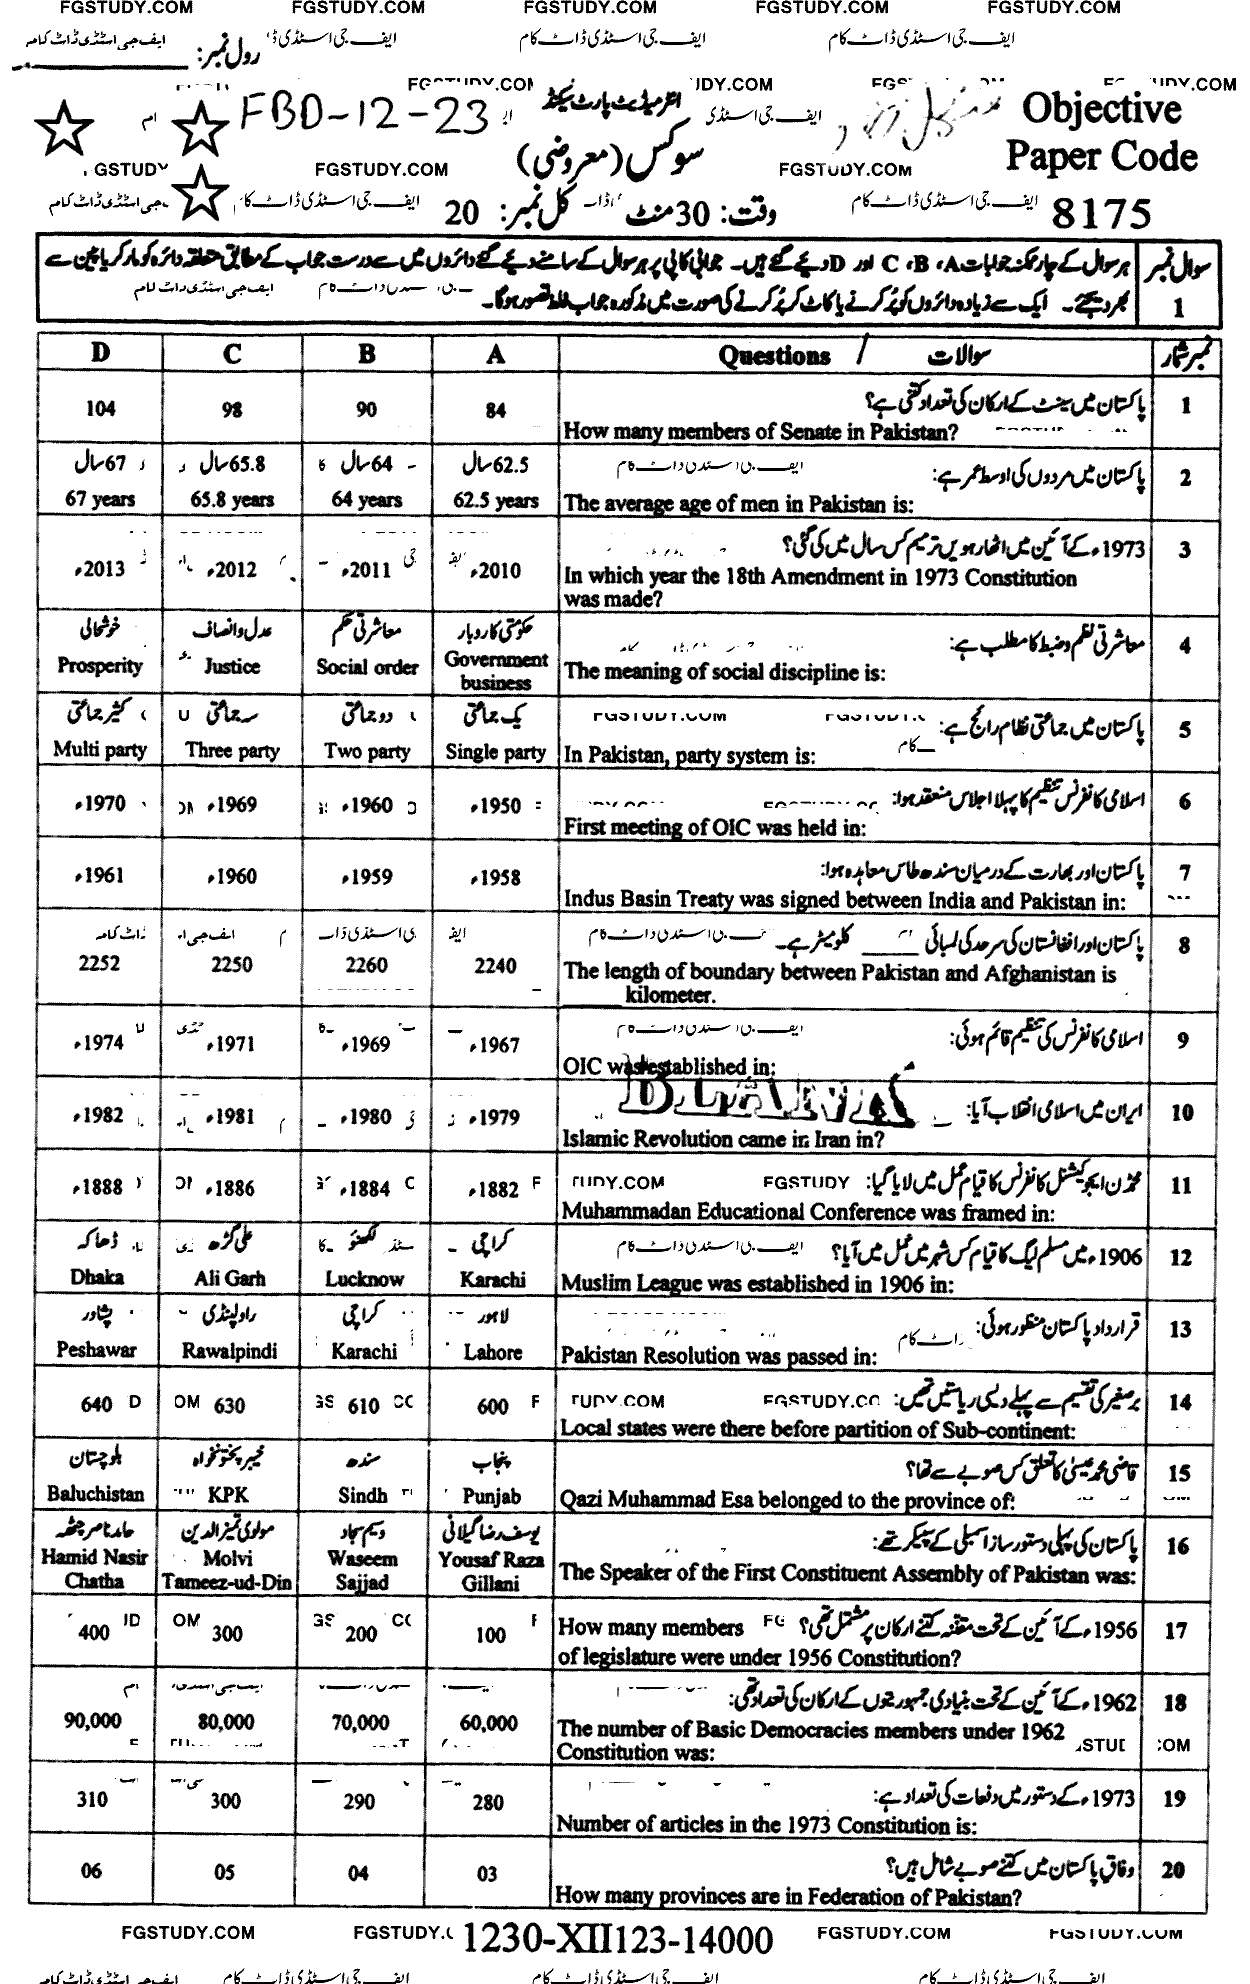 FGSTUDY.COM FGSTUDY.COM FGSTUDY.COM FGSTUDY.COM FGSTUDY.COM
ایف جی اسٹڈی ڈاٹ کام ایف جی اسٹڈی ڈاٹ کام ایف جی اسٹڈی ڈاٹ کام
رول نمبر:
FBD-12-23
انٹرمیڈیٹ پارٹ سیکنڈ
Objective
Paper Code
8175
سوکس (معروضی)
FGSTUDY.COM FGSTUDY.COM
وقت: 30 منٹ کل نمبر: 20
سوال نمبر 1
ہر سوال کے چار ممکنہ جوابات A، B، C اور D دیئے گئے ہیں۔ جوابی کاپی پر ہر سوال کے سامنے دیئے گئے دائروں میں سے درست جواب کے مطابق متعلقہ دائرہ کو مارکر یا پین سے
بھر دیجئے۔ ایک سے زیادہ دائروں کو پُر کرنے یا کاٹ کر پُر کرنے کی صورت میں مذکورہ جواب غلط تصور ہوگا۔
D C B A Questions / سوالات نمبر شمار
1 پاکستان میں سینٹ کے ارکان کی تعداد کتنی ہے؟
How many members of Senate in Pakistan?
104 98 90 84
2 پاکستان میں مردوں کی اوسط عمر ہے:
67 سال 65.8 سال 64 سال 62.5 سال
The average age of men in Pakistan is:
67 years 65.8 years 64 years 62.5 years
3 1973ء کے آئین میں اٹھارہویں ترمیم کس سال میں کی گئی؟
In which year the 18th Amendment in 1973 Constitution
was made?
2013ء 2012ء 2011ء 2010ء
4 معاشرتی نظم و ضبط کا مطلب ہے:
خوشحالی عدل و انصاف معاشرتی حکم حکومتی کاروبار
The meaning of social discipline is:
Prosperity Justice Social order Government business
5 پاکستان میں جماعتی نظام رائج ہے:
کثیر جماعتی سہ جماعتی دو جماعتی یک جماعتی
In Pakistan, party system is:
Multi party Three party Two party Single party
6 اسلامی کانفرنس تنظیم کا پہلا اجلاس منعقد ہوا:
First meeting of OIC was held in:
1970ء 1969ء 1960ء 1950ء
7 پاکستان اور بھارت کے درمیان سندھ طاس معاہدہ ہوا:
Indus Basin Treaty was signed between India and Pakistan in:
1961ء 1960ء 1959ء 1958ء
8 پاکستان اور افغانستان کی سرحد کی لمبائی ____ کلومیٹر ہے۔
The length of boundary between Pakistan and Afghanistan is
____ kilometer.
2252 2250 2260 2240
9 اسلامی کانفرنس کی تنظیم قائم ہوئی:
OIC was established in:
1974ء 1971ء 1969ء 1967ء
10 ایران میں اسلامی انقلاب آیا:
Islamic Revolution came in Iran in?
1982ء 1981ء 1980ء 1979ء
11 محمڈن ایجوکیشنل کانفرنس کا قیام عمل میں لایا گیا:
Muhammadan Educational Conference was framed in:
1888ء 1886ء 1884ء 1882ء
12 1906ء میں مسلم لیگ کا قیام کس شہر میں عمل میں آیا؟
ڈھاکہ علی گڑھ لکھنؤ کراچی
Muslim League was established in 1906 in:
Dhaka Ali Garh Lucknow Karachi
13 قرارداد پاکستان منظور ہوئی:
پشاور راولپنڈی کراچی لاہور
Pakistan Resolution was passed in:
Peshawar Rawalpindi Karachi Lahore
14 برصغیر کی تقسیم سے پہلے دیسی ریاستیں تھیں:
Local states were there before partition of Sub-continent:
640 630 610 600
15 قاضی محمد عیسیٰ کا تعلق کس صوبے سے تھا؟
بلوچستان خیبر پختونخواہ سندھ پنجاب
Qazi Muhammad Esa belonged to the province of:
Baluchistan KPK Sindh Punjab
16 پاکستان کی پہلی دستور ساز اسمبلی کے سپیکر تھے:
حامد ناصر چٹھہ مولوی تمیز الدین وسیم سجاد یوسف رضا گیلانی
The Speaker of the First Constituent Assembly of Pakistan was:
Hamid Nasir Chatha Molvi Tameez-ud-Din Waseem Sajjad Yousaf Raza Gillani
17 1956ء کے آئین کے تحت مقننہ کتنے ارکان پر مشتمل تھی؟
How many members
of legislature were under 1956 Constitution?
400 300 200 100
18 1962ء کے آئین کے تحت بنیادی جمہوریتوں کے ارکان کی تعداد تھی:
The number of Basic Democracies members under 1962
Constitution was:
90,000 80,000 70,000 60,000
19 1973ء کے دستور میں دفعات کی تعداد ہے:
Number of articles in the 1973 Constitution is:
310 300 290 280
20 وفاق پاکستان میں کتنے صوبے شامل ہیں؟
How many provinces are in Federation of Pakistan?
06 05 04 03
1230-XII123-14000
FGSTUDY.COM FGSTUDY.COM FGSTUDY.COM
ایف جی اسٹڈی ڈاٹ کام ایف جی اسٹڈی ڈاٹ کام